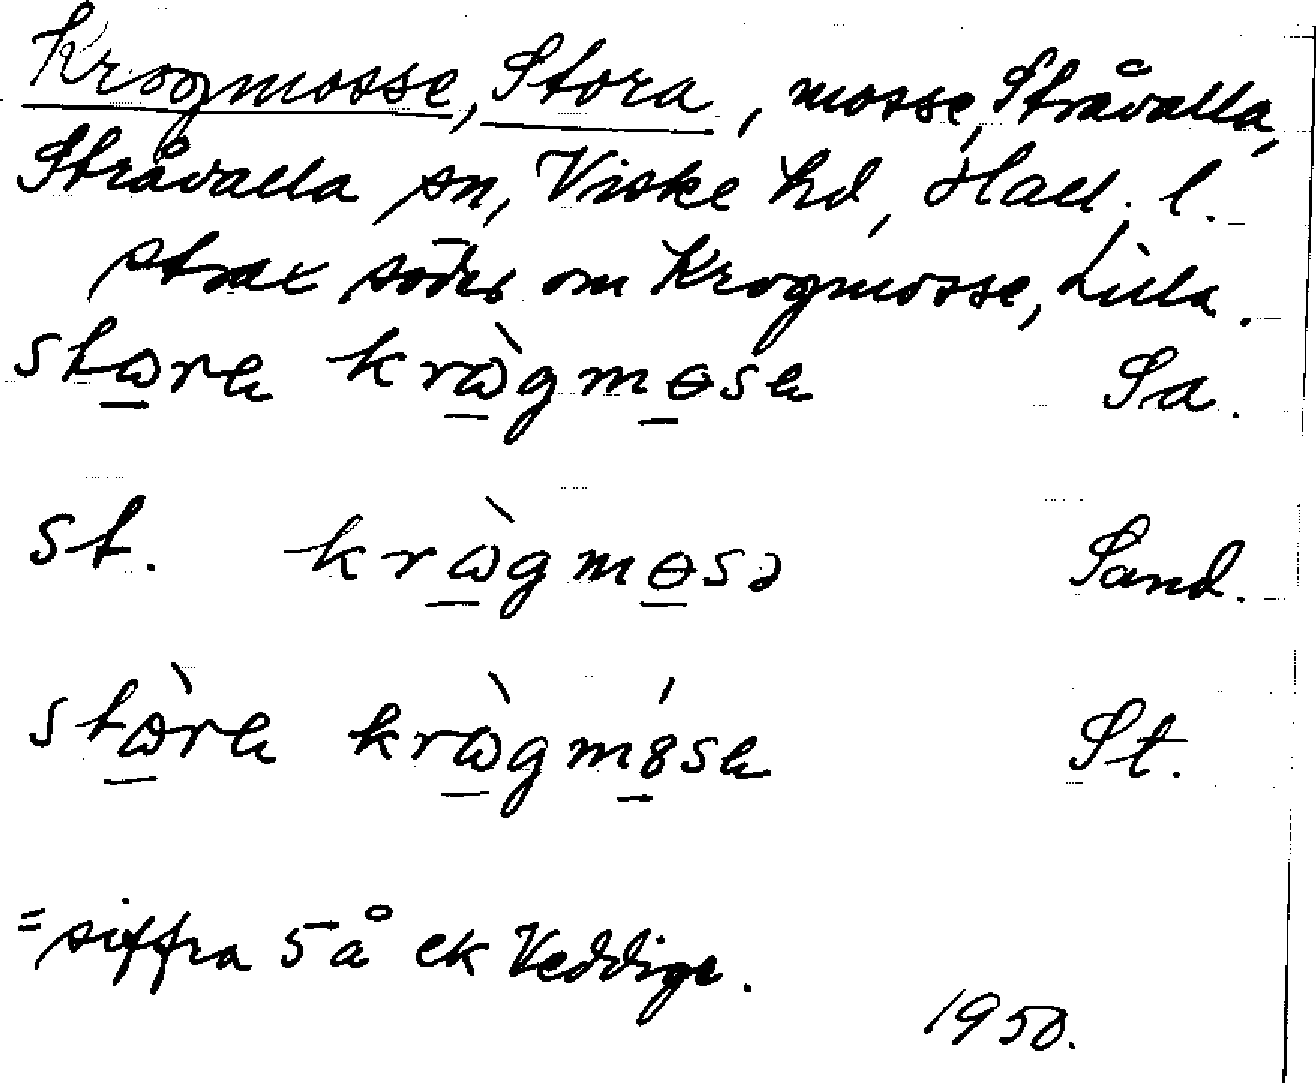 Krogmosse, Stora, mosse, Stråvalla,
Stråvalla sn, Viske hd, Hall. l.
strax söder om Krogmosse, Lilla.
stɷra krɷ̀gmɵsa Sa.
st. krɷ̀gmɵsə Sand.
stɷ̀ra krɷ̀gm8́sa St.
= siffra 5 å ek Veddige.
1950.